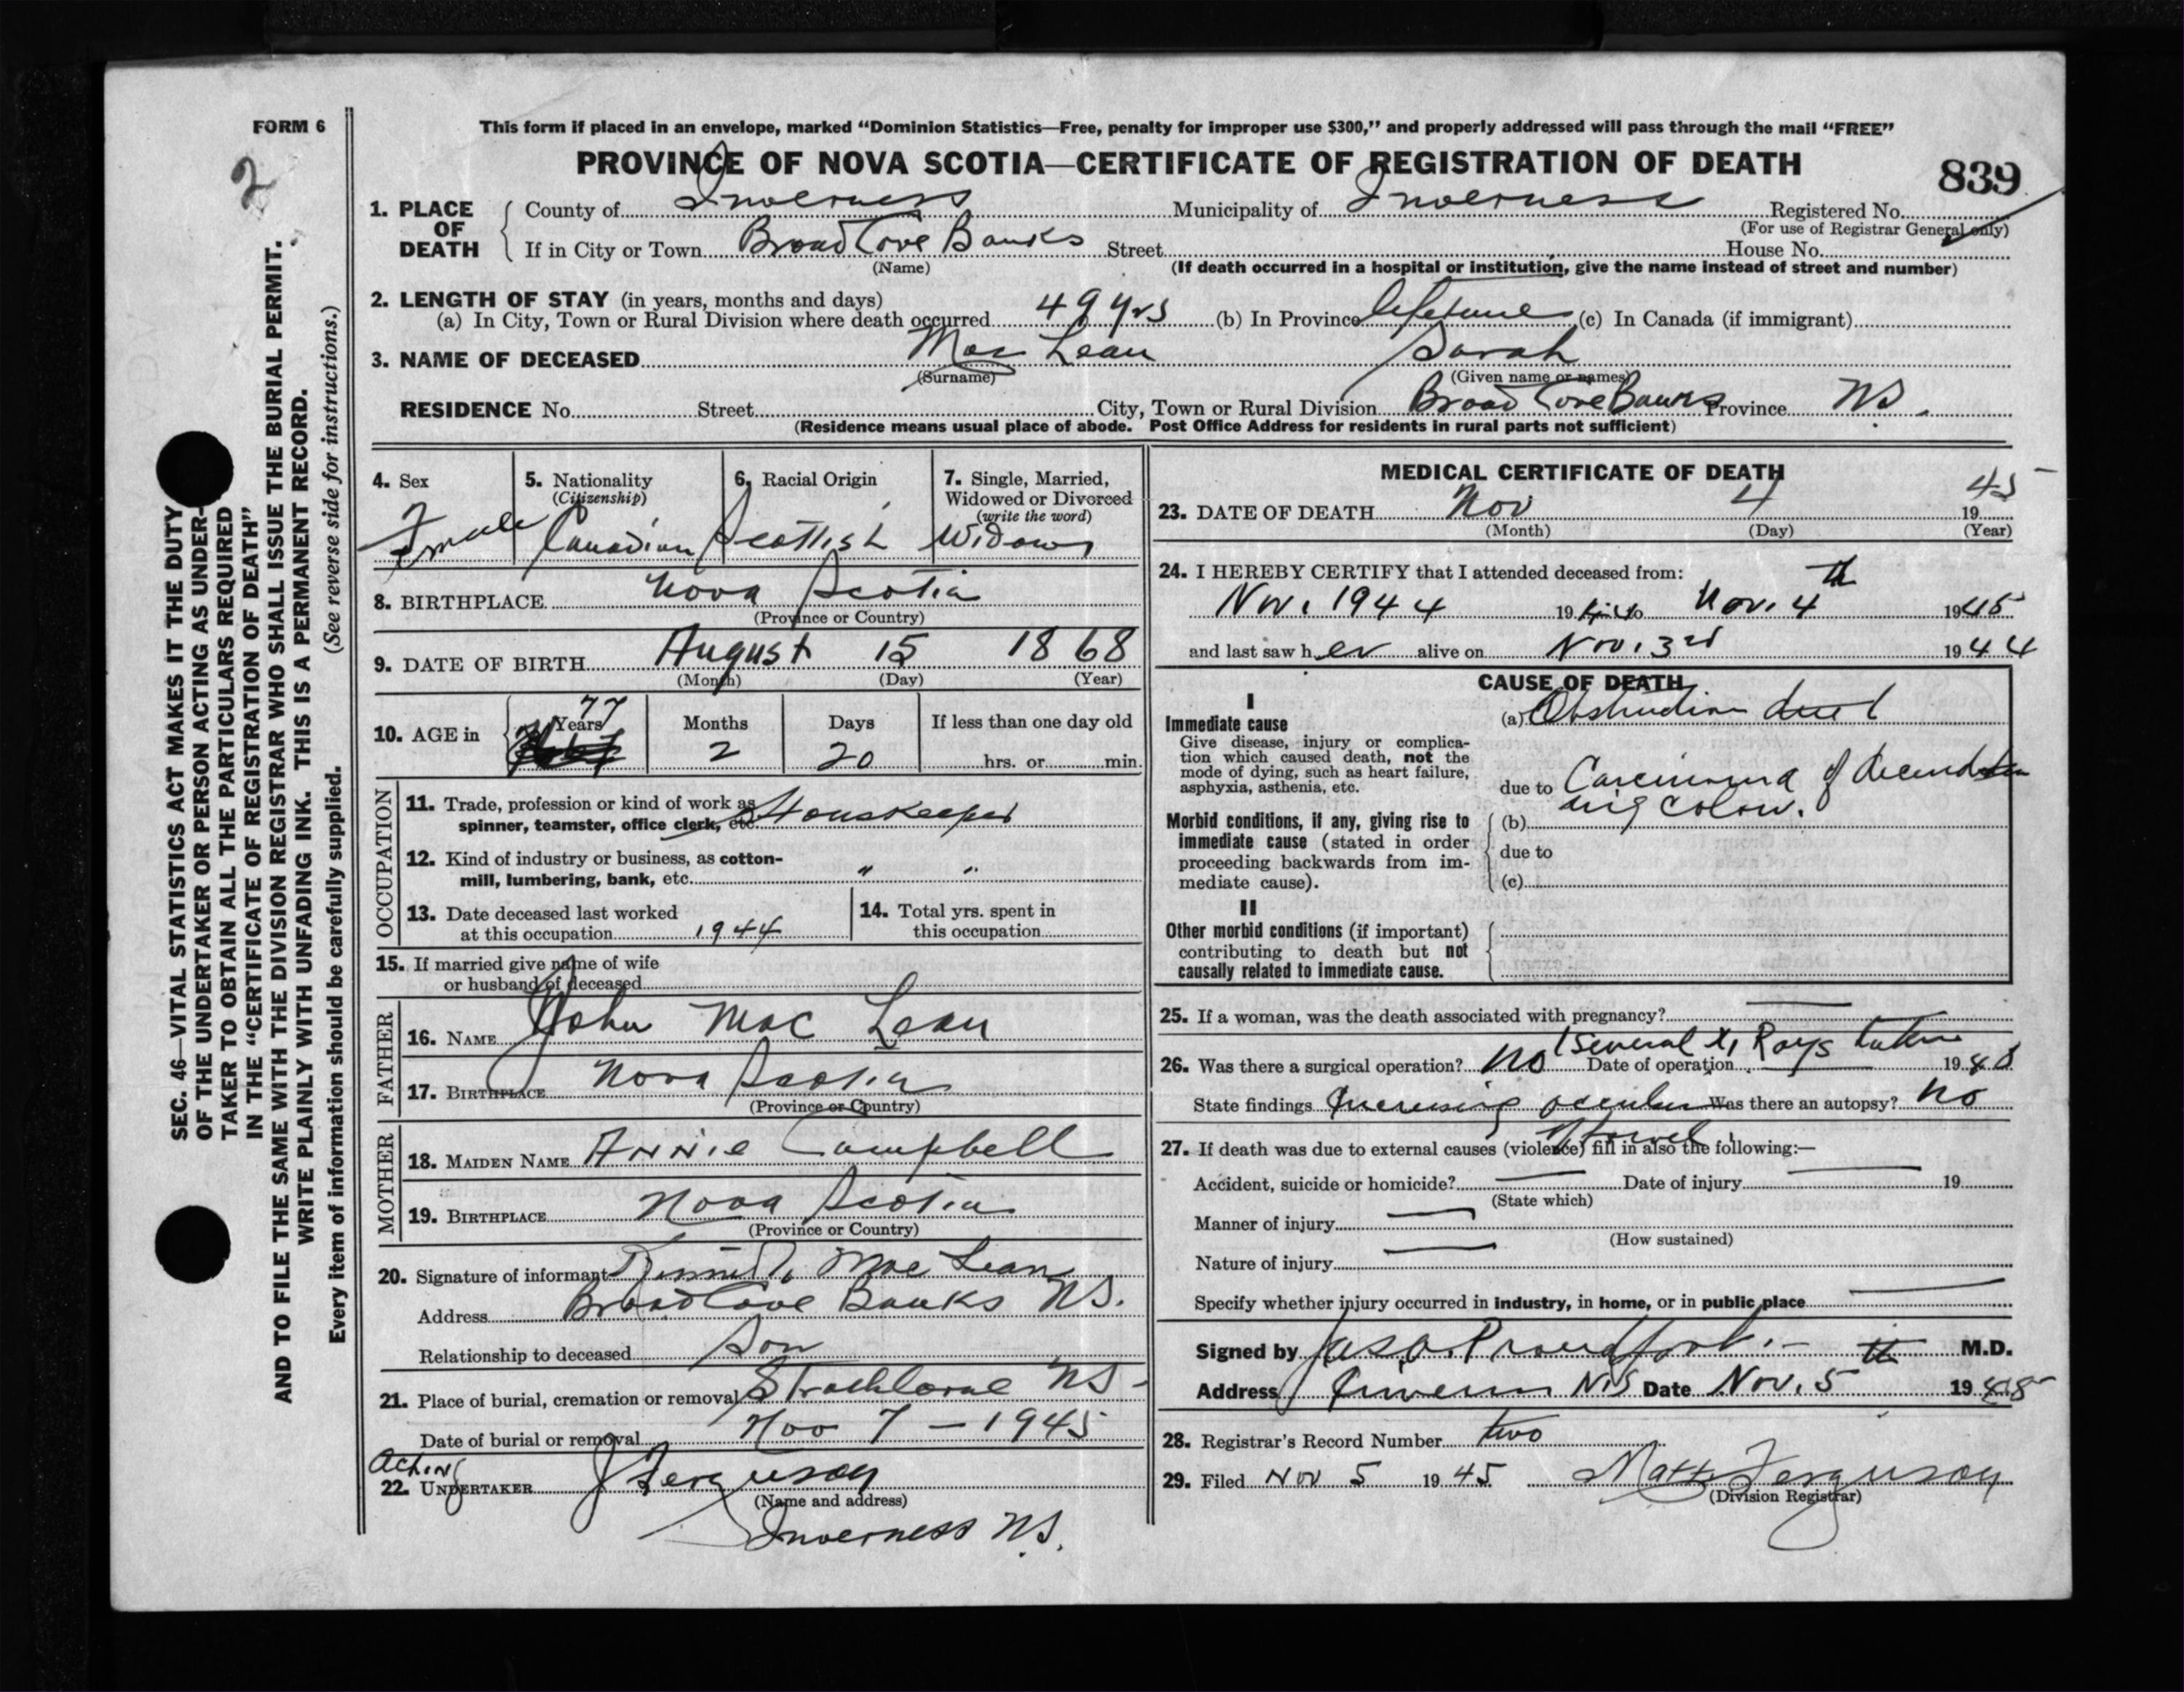 FORM 6
2
This form if placed in an envelope, marked “Dominion Statistics—Free, penalty for improper use $300,” and properly addressed will pass through the mail “FREE”
PROVINCE OF NOVA SCOTIA—CERTIFICATE OF REGISTRATION OF DEATH
839
1. PLACE OF DEATH
County of Inverness Municipality of Inverness Registered No.
(For use of Registrar General only)
If in City or Town Broad Cove Banks Street House No.
(Name) (If death occurred in a hospital or institution, give the name instead of street and number)
2. LENGTH OF STAY (in years, months and days)
(a) In City, Town or Rural Division where death occurred 49 yrs (b) In Province lifetime (c) In Canada (if immigrant)
3. NAME OF DECEASED Mac Lean Sarah
(Surname) (Given name or names)
RESIDENCE No. Street City, Town or Rural Division Broad Cove Banks Province NS.
(Residence means usual place of abode. Post Office Address for residents in rural parts not sufficient)
SEC. 46—VITAL STATISTICS ACT MAKES IT THE DUTY
OF THE UNDERTAKER OR PERSON ACTING AS UNDER-
TAKER TO OBTAIN ALL THE PARTICULARS REQUIRED
IN THE “CERTIFICATE OF REGISTRATION OF DEATH”
AND TO FILE THE SAME WITH THE DIVISION REGISTRAR WHO SHALL ISSUE THE BURIAL PERMIT.
WRITE PLAINLY WITH UNFADING INK. THIS IS A PERMANENT RECORD.
Every item of information should be carefully supplied. (See reverse side for instructions.)
4. Sex
Female
5. Nationality
(Citizenship)
Canadian
6. Racial Origin
Scottish
7. Single, Married,
Widowed or Divorced
(write the word)
Widow
8. BIRTHPLACE Nova Scotia
(Province or Country)
9. DATE OF BIRTH August 15 1868
(Month) (Day) (Year)
10. AGE in
Years 77
Months 2
Days 20
If less than one day old
hrs. or min.
OCCUPATION
11. Trade, profession or kind of work as
spinner, teamster, office clerk, etc. Houskeeper
12. Kind of industry or business, as cotton-
mill, lumbering, bank, etc. " "
13. Date deceased last worked
at this occupation 1944
14. Total yrs. spent in
this occupation
15. If married give name of wife
or husband of deceased
FATHER
16. NAME John Mac Lean
17. BIRTHPLACE Nova Scotia
(Province or Country)
MOTHER
18. MAIDEN NAME Annie Campbell
19. BIRTHPLACE Nova Scotia
(Province or Country)
20. Signature of informant Kenneth Mac Lean
Address Broad Cove Banks NS.
Relationship to deceased Son
21. Place of burial, cremation or removal Strathlorne NS
Date of burial or removal Nov 7 - 1945
Acting
22. UNDERTAKER J Ferguson
(Name and address)
Inverness NS.
MEDICAL CERTIFICATE OF DEATH
23. DATE OF DEATH Nov 4 1945
(Month) (Day) (Year)
24. I HEREBY CERTIFY that I attended deceased from:
Nov. 1944 19 to Nov. 4th 1945
and last saw her alive on Nov. 3rd 1944
CAUSE OF DEATH
I
Immediate cause
Give disease, injury or complica-
tion which caused death, not the
mode of dying, such as heart failure,
asphyxia, asthenia, etc.
(a) Obstruction
due to Carcinoma of
colon.
Morbid conditions, if any, giving rise to
immediate cause (stated in order
proceeding backwards from im-
mediate cause).
(b)
due to
(c)
II
Other morbid conditions (if important)
contributing to death but not
causally related to immediate cause.
25. If a woman, was the death associated with pregnancy?
(Several X Rays taken
26. Was there a surgical operation? No Date of operation 19
State findings Increasing Was there an autopsy? No
27. If death was due to external causes (violence) fill in also the following:—
Accident, suicide or homicide? Date of injury 19
(State which)
Manner of injury
(How sustained)
Nature of injury
Specify whether injury occurred in industry, in home, or in public place
Signed by Jas. A. Proudfoot M.D.
Address Inverness N.S Date Nov. 5th 1945
28. Registrar’s Record Number two
29. Filed Nov 5 1945 Matt Ferguson
(Division Registrar)